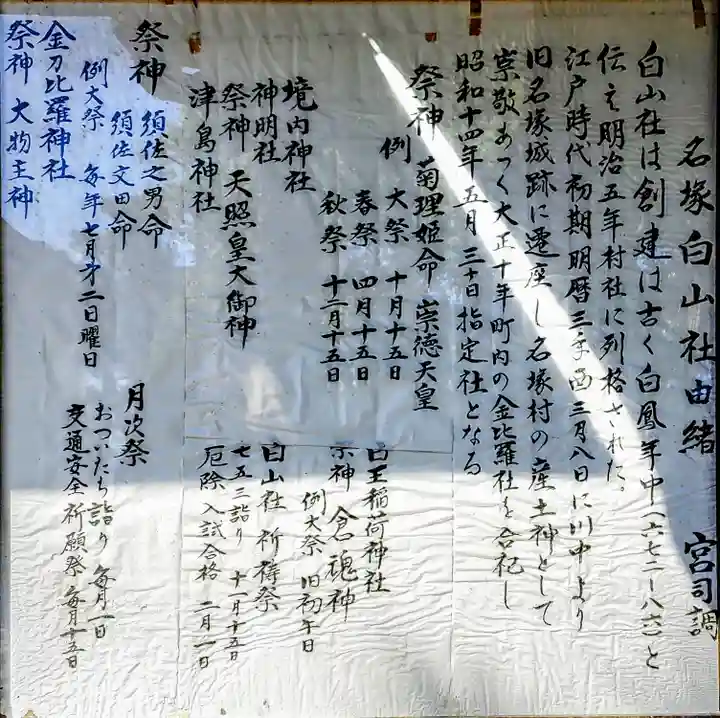 名塚白山社由緒 宮司調
白山社は創建は古く白鳳年中(六七二-八六)と
伝え明治五年村社に列格された。
江戸時代初期明暦三年酉三月八日に川中より
旧名塚城跡に遷座し名塚村の産土神として
崇敬あつく大正十年町内の金比羅社を合祀し
昭和十四年五月三十日指定社となる
祭神 菊理姫命 崇徳天皇
例 大祭 十月十五日
春祭 四月十五日
秋祭 十二月十五日
境内神社
神明社
祭神 天照皇大御神
津島神社
祭神 須佐之男命
須佐文田命
例大祭 毎年七月才二日曜日
金刀比羅神社
祭神 大物主神
白王稲荷神社
祭神 倉魂神
例大祭 旧初午日
白山社 祈祷祭
七五三詣り 十一月十五日
厄除入試合格 二月一日
月次祭
おついたち詣り 毎月一日
交通安全祈願祭 毎月十五日